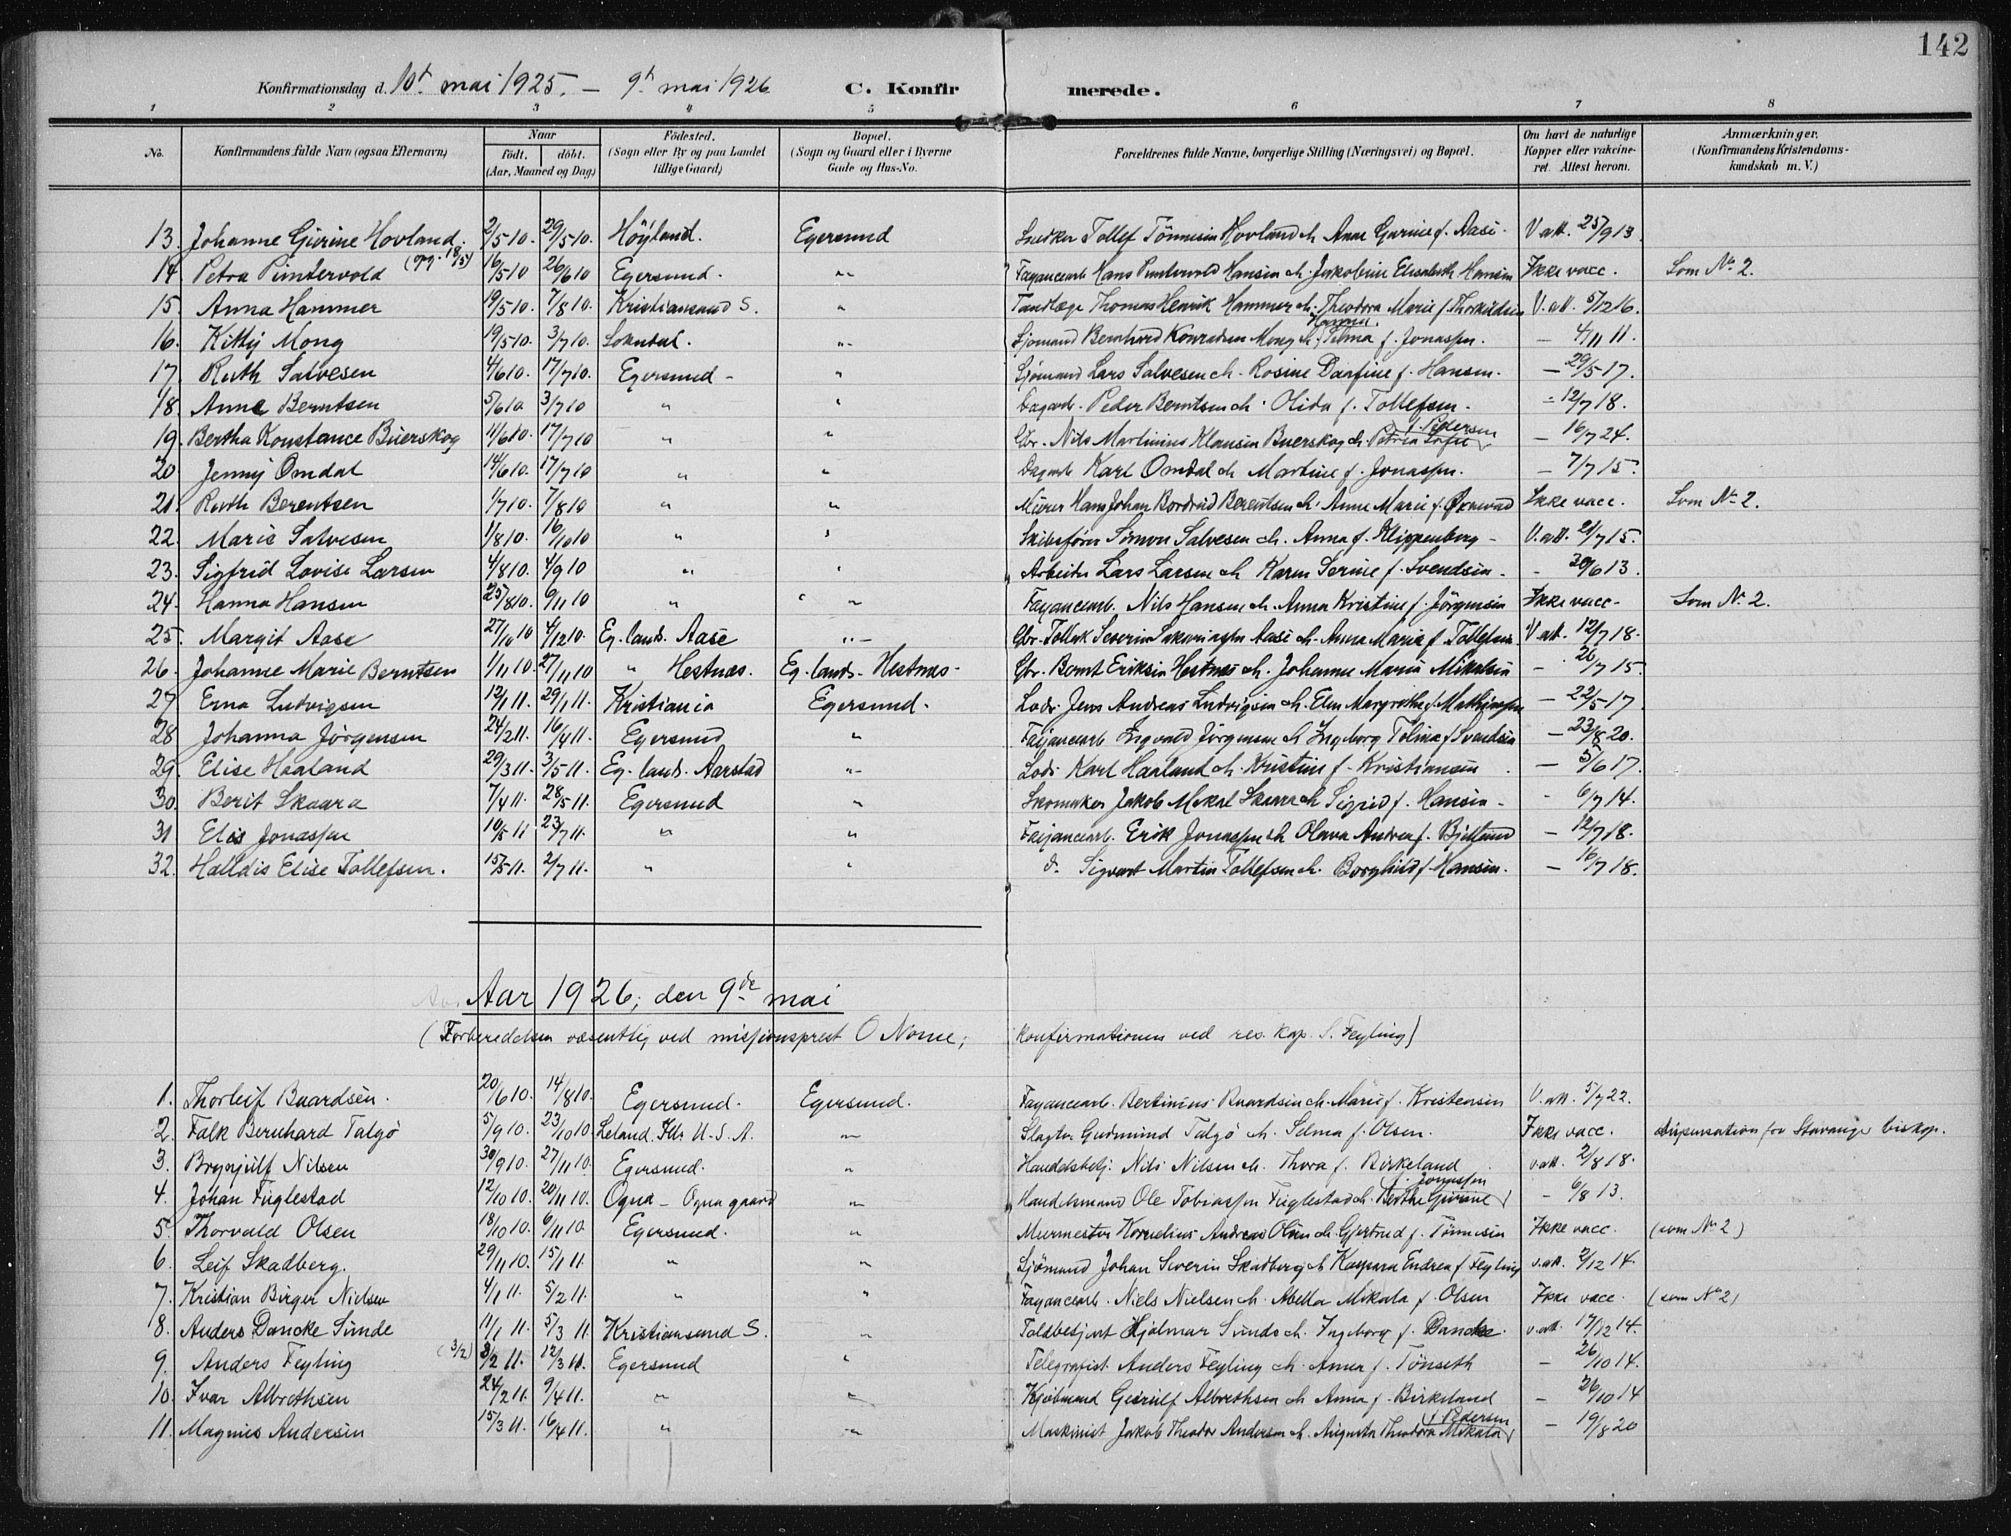 142
Konfirmationsdag d. 10de mai 1925. – 9de mai 1926 C. Konfirmerede.
1 2 3 4 5 6 7 8
No. Konfirmandens fulde Navn (ogsaa Efternavn) Naar født. døbt. (Aar, Maaned og Dag) Fødested. (Sogn eller By og paa Landet tillige Gaard) Bopæl. (Sogn og Gaard eller i Byerne Gade og Hus-No. Forældrenes fulde Navne, borgerlige Stilling (Næringsvei) og Bopæl. Om havt de naturlige Kopper eller vakcineret. Attest herom. Anmærkninger. (Konfirmandens Kristendomskundskab m. V.)
13. Johanne Gurine Hovland. 2/5 10. 29/5 10. Höyland. Egersund Snedker Tollef Tönnesen Hovland ch. Anne Gurine f. Aase V. att. 25/9 13.
14. Petra Pintervold (opg. 18/5) 16/5 10 26/6 10 Egersund. " Fayancearb. Hans Pintervold Hansen ch. Jakobine Elisabeth Hansen Ikke vacc. Som No 2.
15. Anna Hammer 19/5 10. 7/8 10. Kristiansand S. " Tandlæge Thomas Henrik Hammer ch. Theodora Marie f. Thorkildsen V. att. 5/12 16.
16. Kitty Mong 19/5 10. 3/7 10. Sokndal. " Sjömand Bernhard Konradsen Mong ch. Hanna Selma f. Jonassen. – 4/11 11.
17. Ruth Salvesen 4/6 10. 17/7 10. Egersund – " Sjömand Lars Salvesen ch. Rosine Darfine f. Hansen. – 29/5 17.
18. Anna Berntsen 5/6 10 3/7 10 " " Dagarb. Peder Berntsen ch. Olida f. Tollefsen. – 12/7 18.
19. Bertha Konstance Buerskog 11/6 10. 17/7 10 " " Gbr. Nils Martinius Klausen Buerskog ch. Petria Sofie f. Pedersen – 16/7 24.
20 Jenny Omdal 14/6 10. 17/7 10 " " Dagarb Karl Omdal ch Martine f. Jonassen. – 7/7 15.
21. Ruth Berentsen 1/7 10. 7/8 10 " " Murer Hans Johan Bordrud Berentsen ch. Anne Marie f. Öknevad Ikke vacc. Som No 2.
22. Marie Salvesen 1/8 10. 16/10 10 " " Skibsförer Simon Salvesen ch. Anna f. Klippenberg – V. att. 21/7 15.
23. Sigfrid Lovise Larsen 4/8 10. 4/9 10 " " Arbeider Lars Larsen ch Karen Serine f. Svendsen. – 30/6 13.
24. Hanna Hansen 25/8 10. 6/11 10 " " Fayancearb. Nils Hansen ch. Anna Kristine f. Jörgensen Ikke vacc. Som No 2.
25. Margit Aase 27/10 10 4/12 10. Eg. lands. Aase " Gbr. Tollak Severin Sakariassen Aase ch. Anna Marie f. Tollefsen V att. 12/7 18.
26. Johanne Marie Berntsen 1/11 10. 27/11 10 " Hestnes. Eg. lands. Hestnes. Gbr. Bernt Eriksen Hestnes ch. Johanne Maria Mikalsen – 26/7 15.
27. Erna Ludvigsen 12/1 11. 29/1 11. Kristiania Egersund. Lods Jens Andreas Ludvigsen ch. Elen Margrethe f. Mathiassen – 22/5 17.
28 Johanna Jörgensen 24/2 11. 16/4 11. Egersund " Fayancearb Ingvald Jörgensen ch Ingeborg Tolina f. Svendsen – 23/8 20.
29. Elise Haaland 29/3 11. 3/5 11. Eg. lands. Aarstad " Lods Karl Haaland ch. Kristine f. Kristiansen – 5/6 17.
30. Berit Skaara 7/4 11. 28/5 11. Egersund " Skomaker Jakob Mikal Skaara ch Sigrid f. Hansen – 6/7 14.
31 Elis Jonassen 10/5 11 23/7 11. " " Fayancearb. Erik Jonassen ch Olava Andrea f. Bjelland – 12/7 18.
32. Halldis Elise Tollefsen. 15/5 11. 2/7 11. " " d. Sigvart Martin Tollefsen ch. Borghild f. Hansen. – 16/7 18.
Aar 1926, den 9de mai
(Forberedelsen væsentlig ved misjonsprest O Nome; konfirmationen ved res. kap. S. Feyling)
1. Thorleif Baardsen. 20/6 10. 14/8 10. Egersund. Egersund. Fayancearb. Bertinius Baardsen ch. Marie f. Kristensen V. att. 5/7 22.
2. Falk Bernhard Talgö 5/9 10. 23/10 10 Leland. Ills. U. S. A. " Slagter Gudmund Talgö ch. Selma f. Olsen. Ikke vacc. dispensation fra Stavanger biskop.
3. Brynjulf Nilsen 30/9 10. 27/11 10. Egersund. " Handelsbetj. Nils Nilsen ch. Thora f. Birkeland v. att. 2/8 18.
4. Johan Fuglestad 12/10 10. 20/11 10. Ogna – Ogna gaard " Handelsmand Ole Tobiassen Fuglestad ch. Berthe Gurine f. Jonassen – 6/8 13.
5. Thorvald Olsen 18/10 10. 6/11 10 Egersund. " Murmester Kornelius Andreas Olsen ch Gjertrud f. Tönnesen Ikke vacc. (som No 2)
6. Leif Skadberg. 29/11 10. 15/1 11. " " Sjömand Johan Severin Skadberg ch Kaspara Endrea f Feyling v. att. 2/12 14.
7. Kristian Birger Nielsen 4/1 11. 5/2 11. " " Fayancearb. Niels Nielsen ch. Abella Mikala f. Olsen Ikke vacc. (som No 2)
8. Anders Dancke Sunde 11/1 11. 5/3 11. Kristiansund S. " Toldbetjent Hjalmar Sunde ch. Ingeborg f. Dancke. v. att. 17/12 14.
9. Anders Feyling (3/2) 3/2 11. 12/3 11. Egersund " Telegrafist Anders Feyling ch. Anna f. Tönseth – 26/10 14.
10. Ivar Albrethsen 24/2 11. 9/4 11. " " Kjöbmand Geirulf Albrethsen ch Anna f. Birkeland – 26/10 14
11. Magnus Andersen 15/3 11. 16/4 11. " " Maskinist Jakob Theodor Andersen ch. Augusta Theodora Mikala f Pedersen – 19/8 20